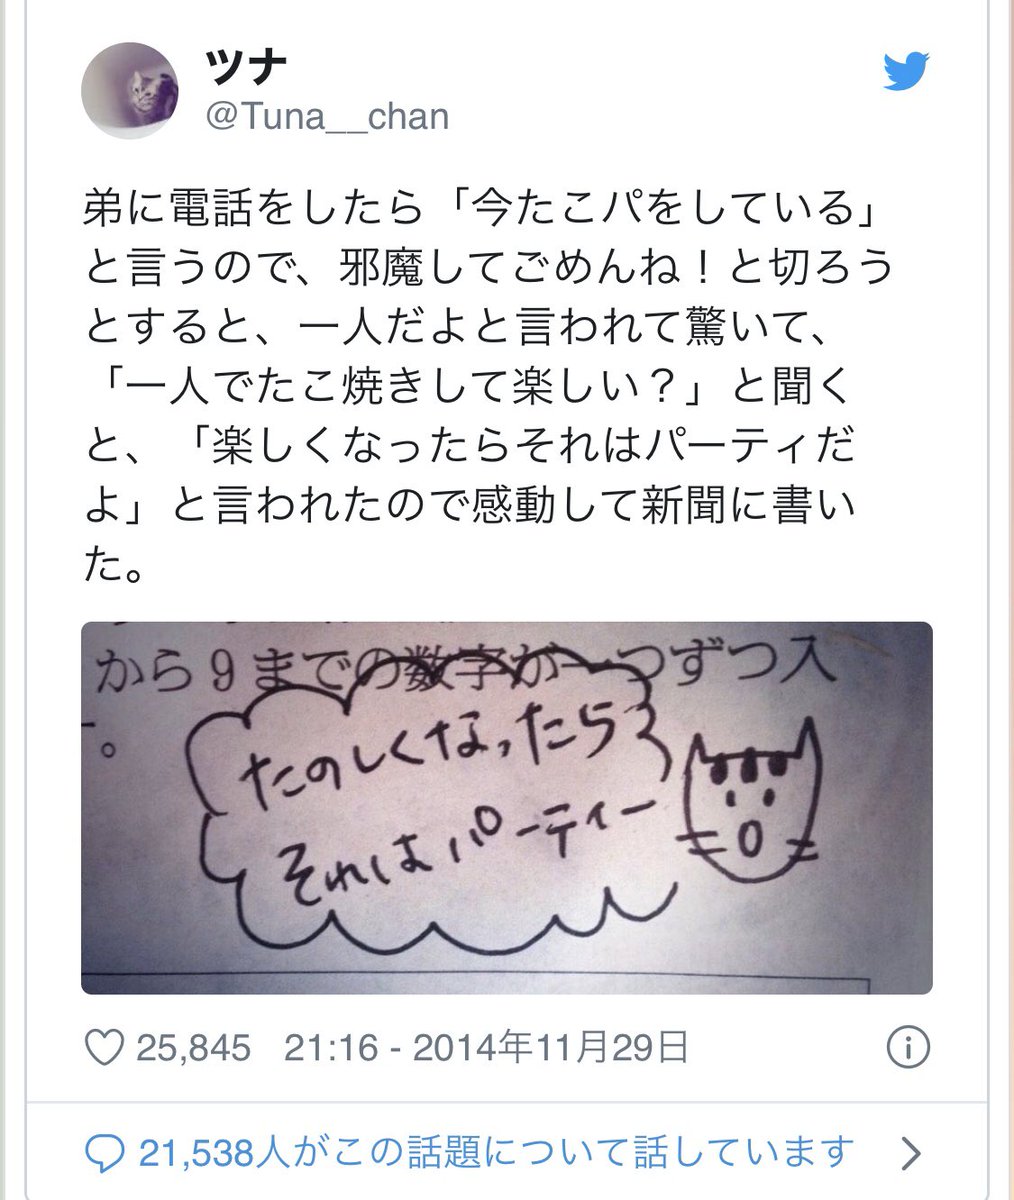 ツナ
@Tuna__chan
弟に電話をしたら「今たこパをしている」
と言うので、邪魔してごめんね！と切ろう
とすると、一人だよと言われて驚いて、
「一人でたこ焼きして楽しい？」と聞く
と、「楽しくなったらそれはパーティだ
よ」と言われたので感動して新聞に書い
た。
から9までの数字が一つずつ入
。
たのしくなったら
それはパーティー
25,845 21:16 - 2014年11月29日
21,538人がこの話題について話しています